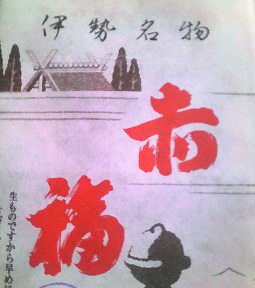 伊勢名物
赤
福
生ものですから早め